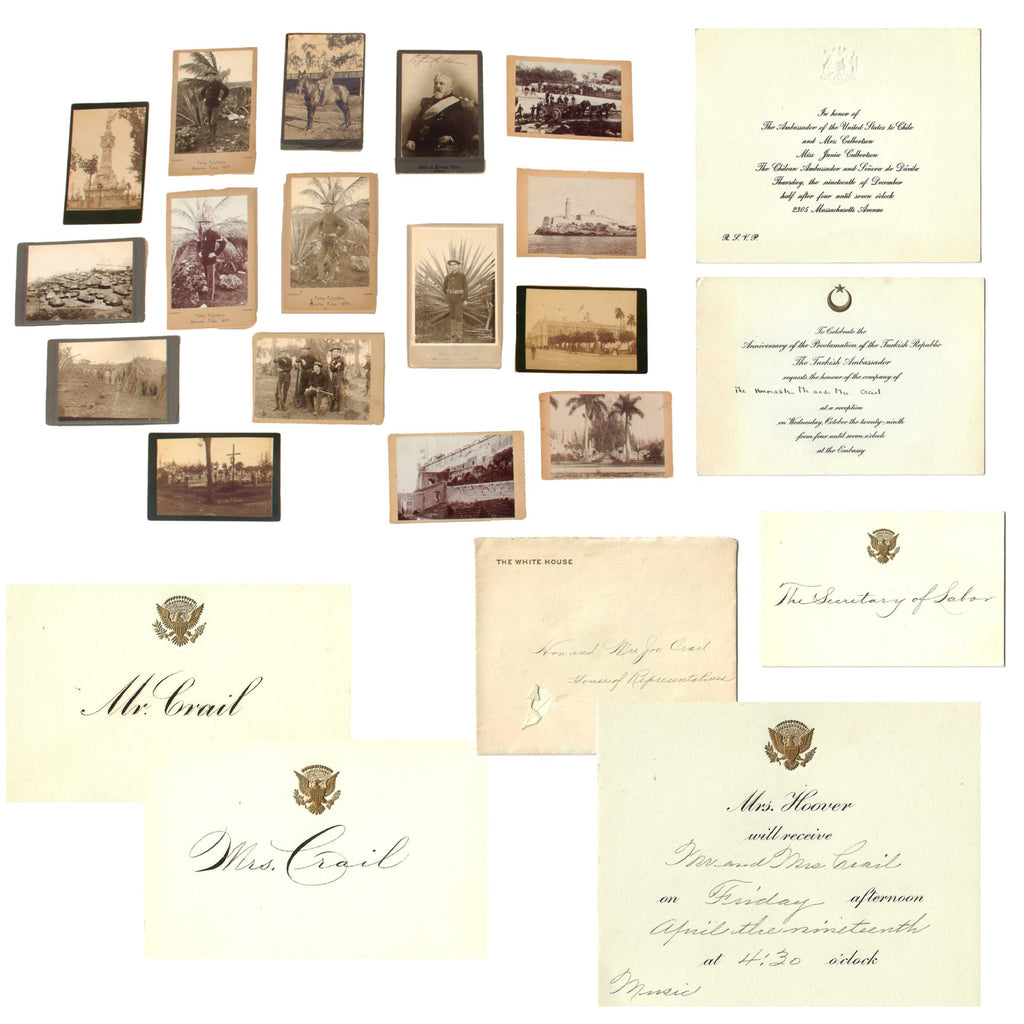 Camp Columbia
Havana Cuba. 1899.
Camp Columbia
Havana, Cuba, 1899.
Camp Columbia
Havana, Cuba. 1899.
In honor of
The Ambassador of the United States to Chile
and Mrs. Culbertson
Miss Janie Culbertson
The Chilean Ambassador and Señora de Dávila
Thursday, the nineteenth of December
half after four until seven o'clock
2305 Massachusetts Avenue
R. S. V. P.
To Celebrate the
Anniversary of the Proclamation of the Turkish Republic
The Turkish Ambassador
requests the honour of the company of
The Honorable Mr. and Mrs. Crail
at a reception
on Wednesday, October the twenty-ninth
from four until seven o'clock
at the Embassy
The Secretary of Labor
THE WHITE HOUSE
Hon and Mrs Joe Crail
House of Representatives
Mr. Crail
Mrs. Crail
Mrs. Hoover
will receive
Mr. and Mrs Crail
on Friday afternoon
April the nineteenth
at 4:30 o'clock
Music